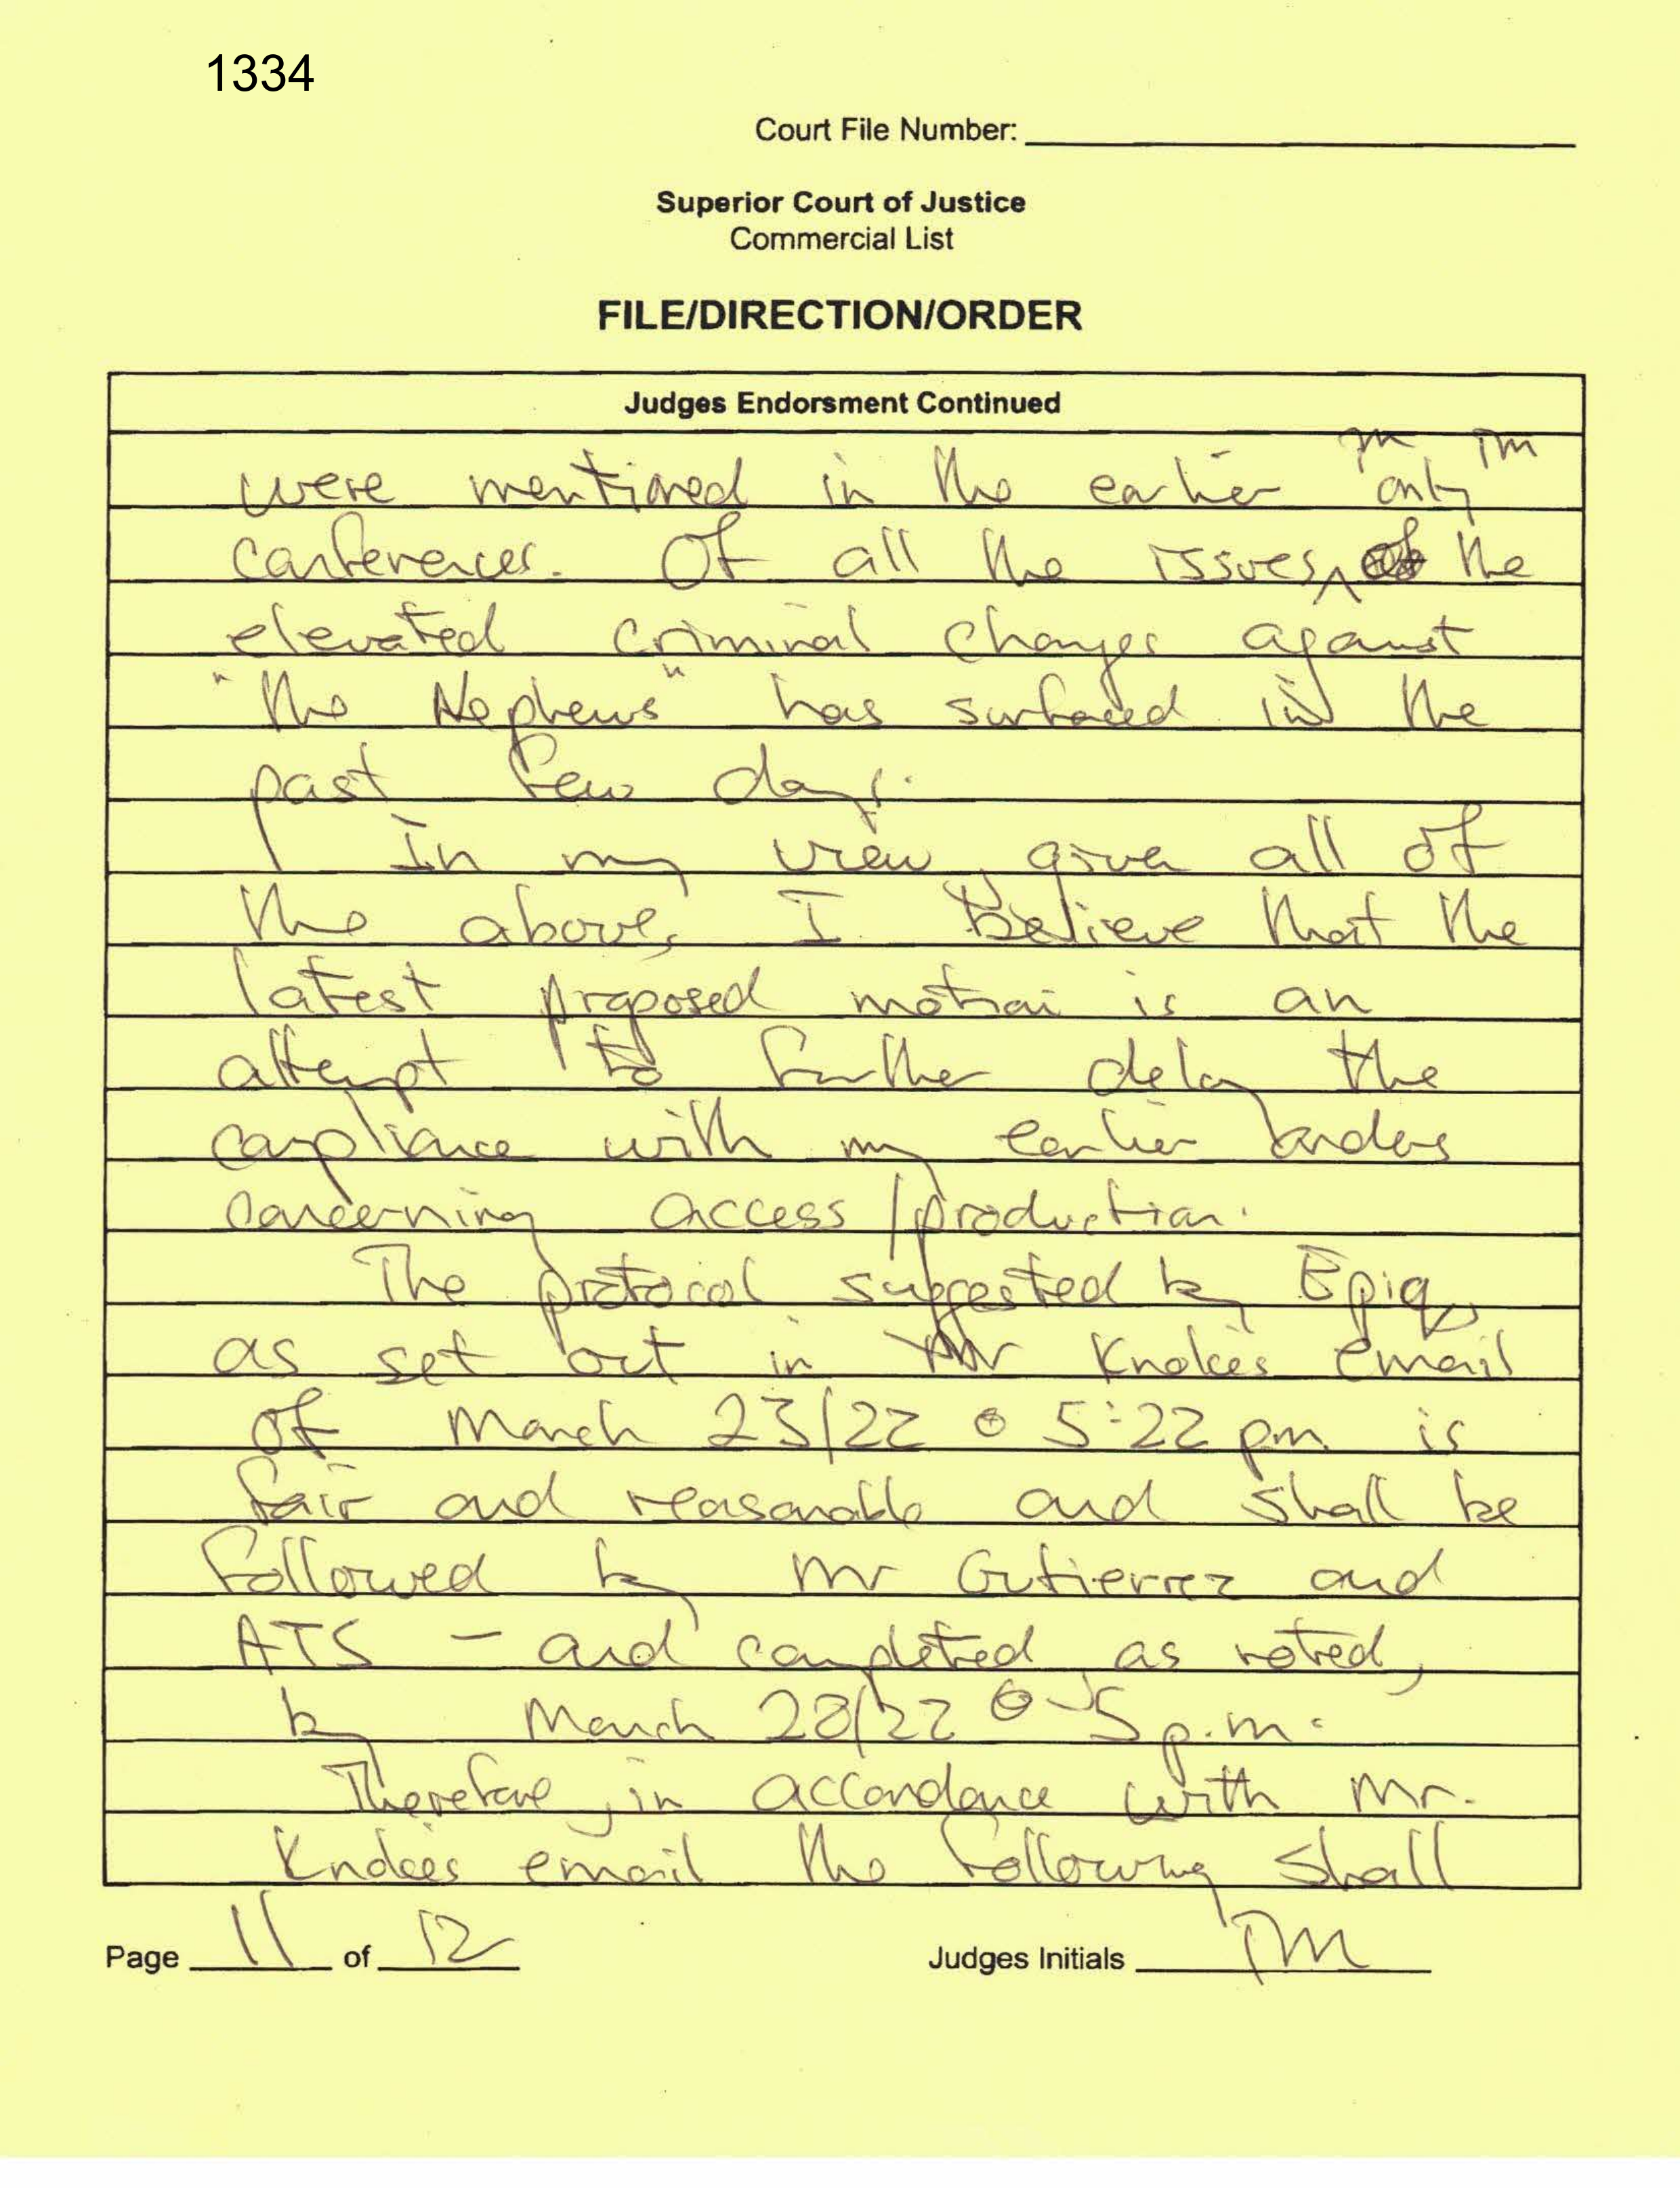 1334
Court File Number:
Superior Court of Justice
Commercial List
FILE/DIRECTION/ORDER
Judges Endorsment Continued
were mentioned in the earlier only
conferences. Of all the issues, the
elevated criminal charges against
"the Nephews" has surfaced in the
past few days.
In my view, given all of
the above, I believe that the
latest proposed motion is an
attempt to further delay the
compliance with my earlier orders
concerning access/production.
The protocol suggested by Epiq,
as set out in Mr Knokes email
of March 23/22 @ 5:22 pm is
fair and reasonable and shall be
followed by Mr Gutierrez and
ATS – and completed, as noted,
by March 28/22 @ 5 p.m.
Therefore, in accordance with Mr.
Knokes email the following shall
Page 11 of 12
Judges Initials TM